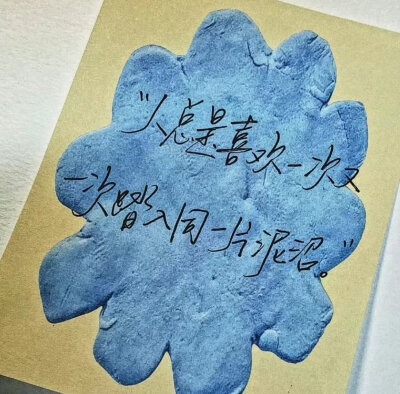 “人总是喜欢一次又
一次踏入同一片泥沼。”